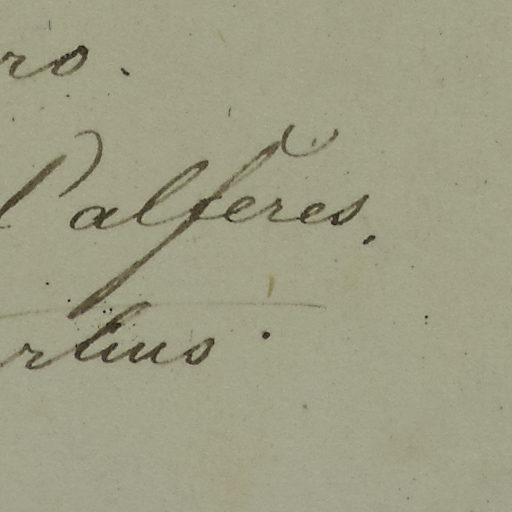 ro.
Palferes.
rtino.